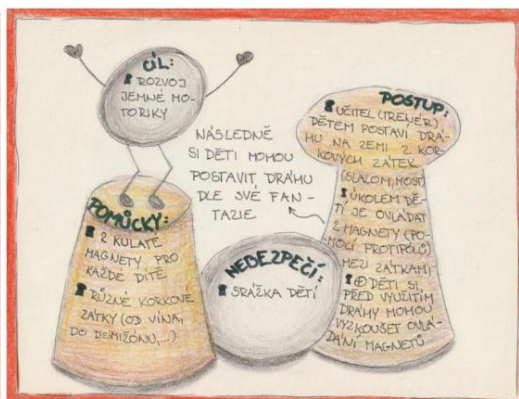 CÍL:
ROZVOJ
JEMNÉ MO-
TORIKY
NÁSLEDNĚ
SI DĚTI MOHOU
POSTAVIT DRÁHU
DLE SVÉ FAN-
TAZIE
POMŮCKY:
2 KULATÉ
MAGNETY PRO
KAŽDÉ DÍTĚ
RŮZNÉ KORKOVÉ
ZÁTKY (OD VÍNA,
DO DEMIŽÓNU,...)
NEBEZPEČÍ:
SRÁŽKA DĚTÍ
POSTUP:
UČITEL (TRENÉR)
DĚTEM POSTAVÍ DRÁ-
HU NA ZEMI Z KOR-
KOVÝCH ZÁTEK
(SLALOM, MOST)
ÚKOLEM DĚ-
TÍ JE OVLÁDAT
2 MAGNETY (PO-
MOCÍ PROTIPÓLŮ)
MEZI ZÁTKAMI
DĚTI SI
PŘED VYUŽITÍM
DRÁHY MOHOU
VYZKOUŠET OVLÁ-
DÁNÍ MAGNETŮ